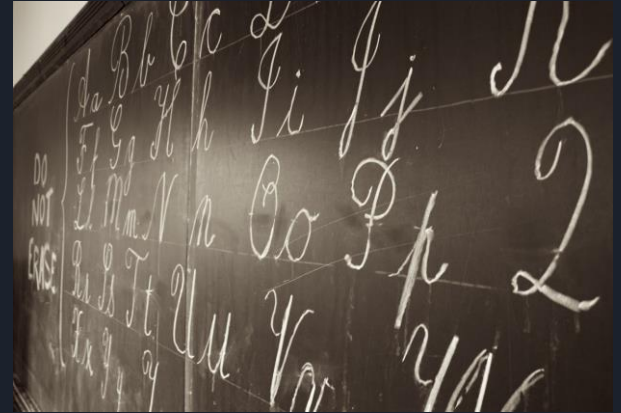 DO
NOT
ERASE
Aa Bb Cc
Ff Gg Hh Ii Jj K
Ll Mm Nn Oo Pp Q
Rr Ss Tt Uu Vv
Xx Yy